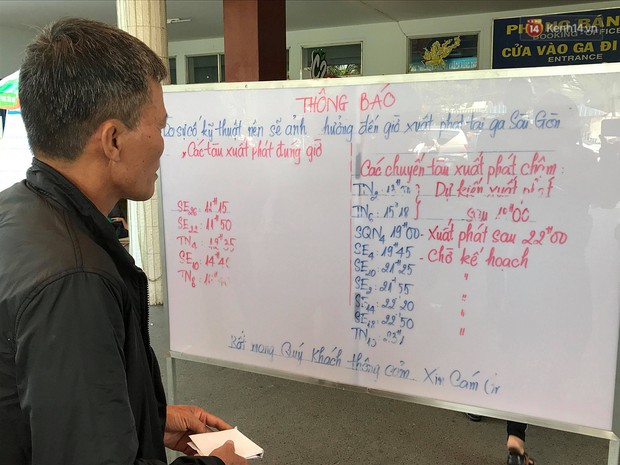 14 Kenh14.vn
PHÒNG BÁN
BOOKING OFFICE
CỬA VÀO GA ĐI
ENTRANCE
C2
THÔNG BÁO
Do sự cố kỹ thuật nên sẽ ảnh hưởng đến giờ xuất phát tại ga Sài Gòn
Các tàu xuất phát đúng giờ
SE26 : 11h15
SE22 : 11h50
TN4
SE10 : 14h40
TN6
Các chuyến tàu xuất phát chậm :
TN2 Dự kiến xuất phát
TN6 : 15h18 sau 18h00
SQN4 19h00 - Xuất phát sau 22h00
SE4 : 19h45 - chờ kế hoạch
SE20 : 21h25 "
SE2 : 21h55 "
SE14 : 22h20 "
SE18 : 22h50 "
TN10
Rất mong Quý Khách thông cảm. Xin Cám Ơn